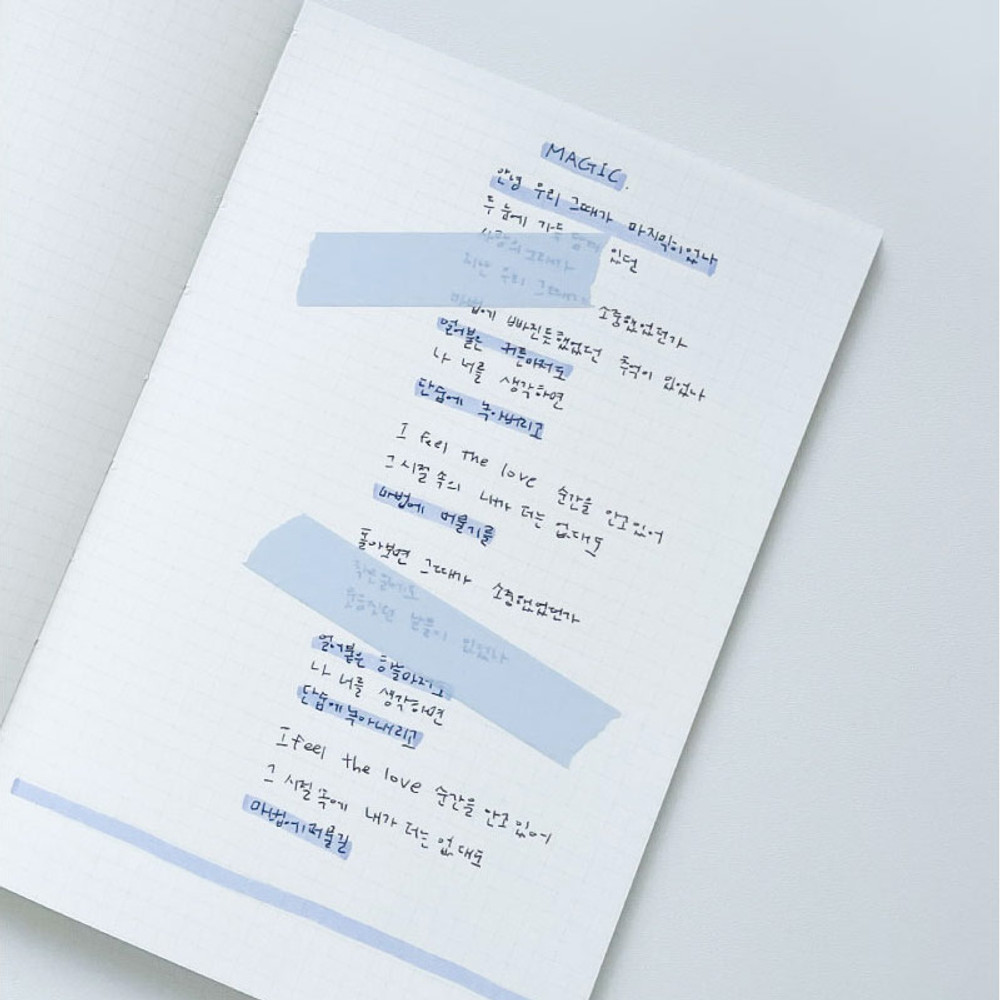 MAGIC.
안녕 우리 그때가 마지막이었나
두 눈에 가득 담겨 있던
사랑의 그대가
지만 우리 그때가 소중했었던가
마법에 빠진듯했었던 추억이 있었나
얼어붙은 겨울마저도
나 너를 생각하면
단숨에 녹아버리고
I feel the love 순간을 안고있어
그 시절 속의 내가 더는 없대도
마법에 머물기를
돌아보면 그때가 소중했었던가
작은 말에도
웃음짓던 날들이 있었나
얼어붙은 하늘마저도
나 너를 생각하면
단숨에 녹아내리고
I feel the love 순간을 안고 있어
그 시절 속에 내가 더는 없대도
마법에 머물길